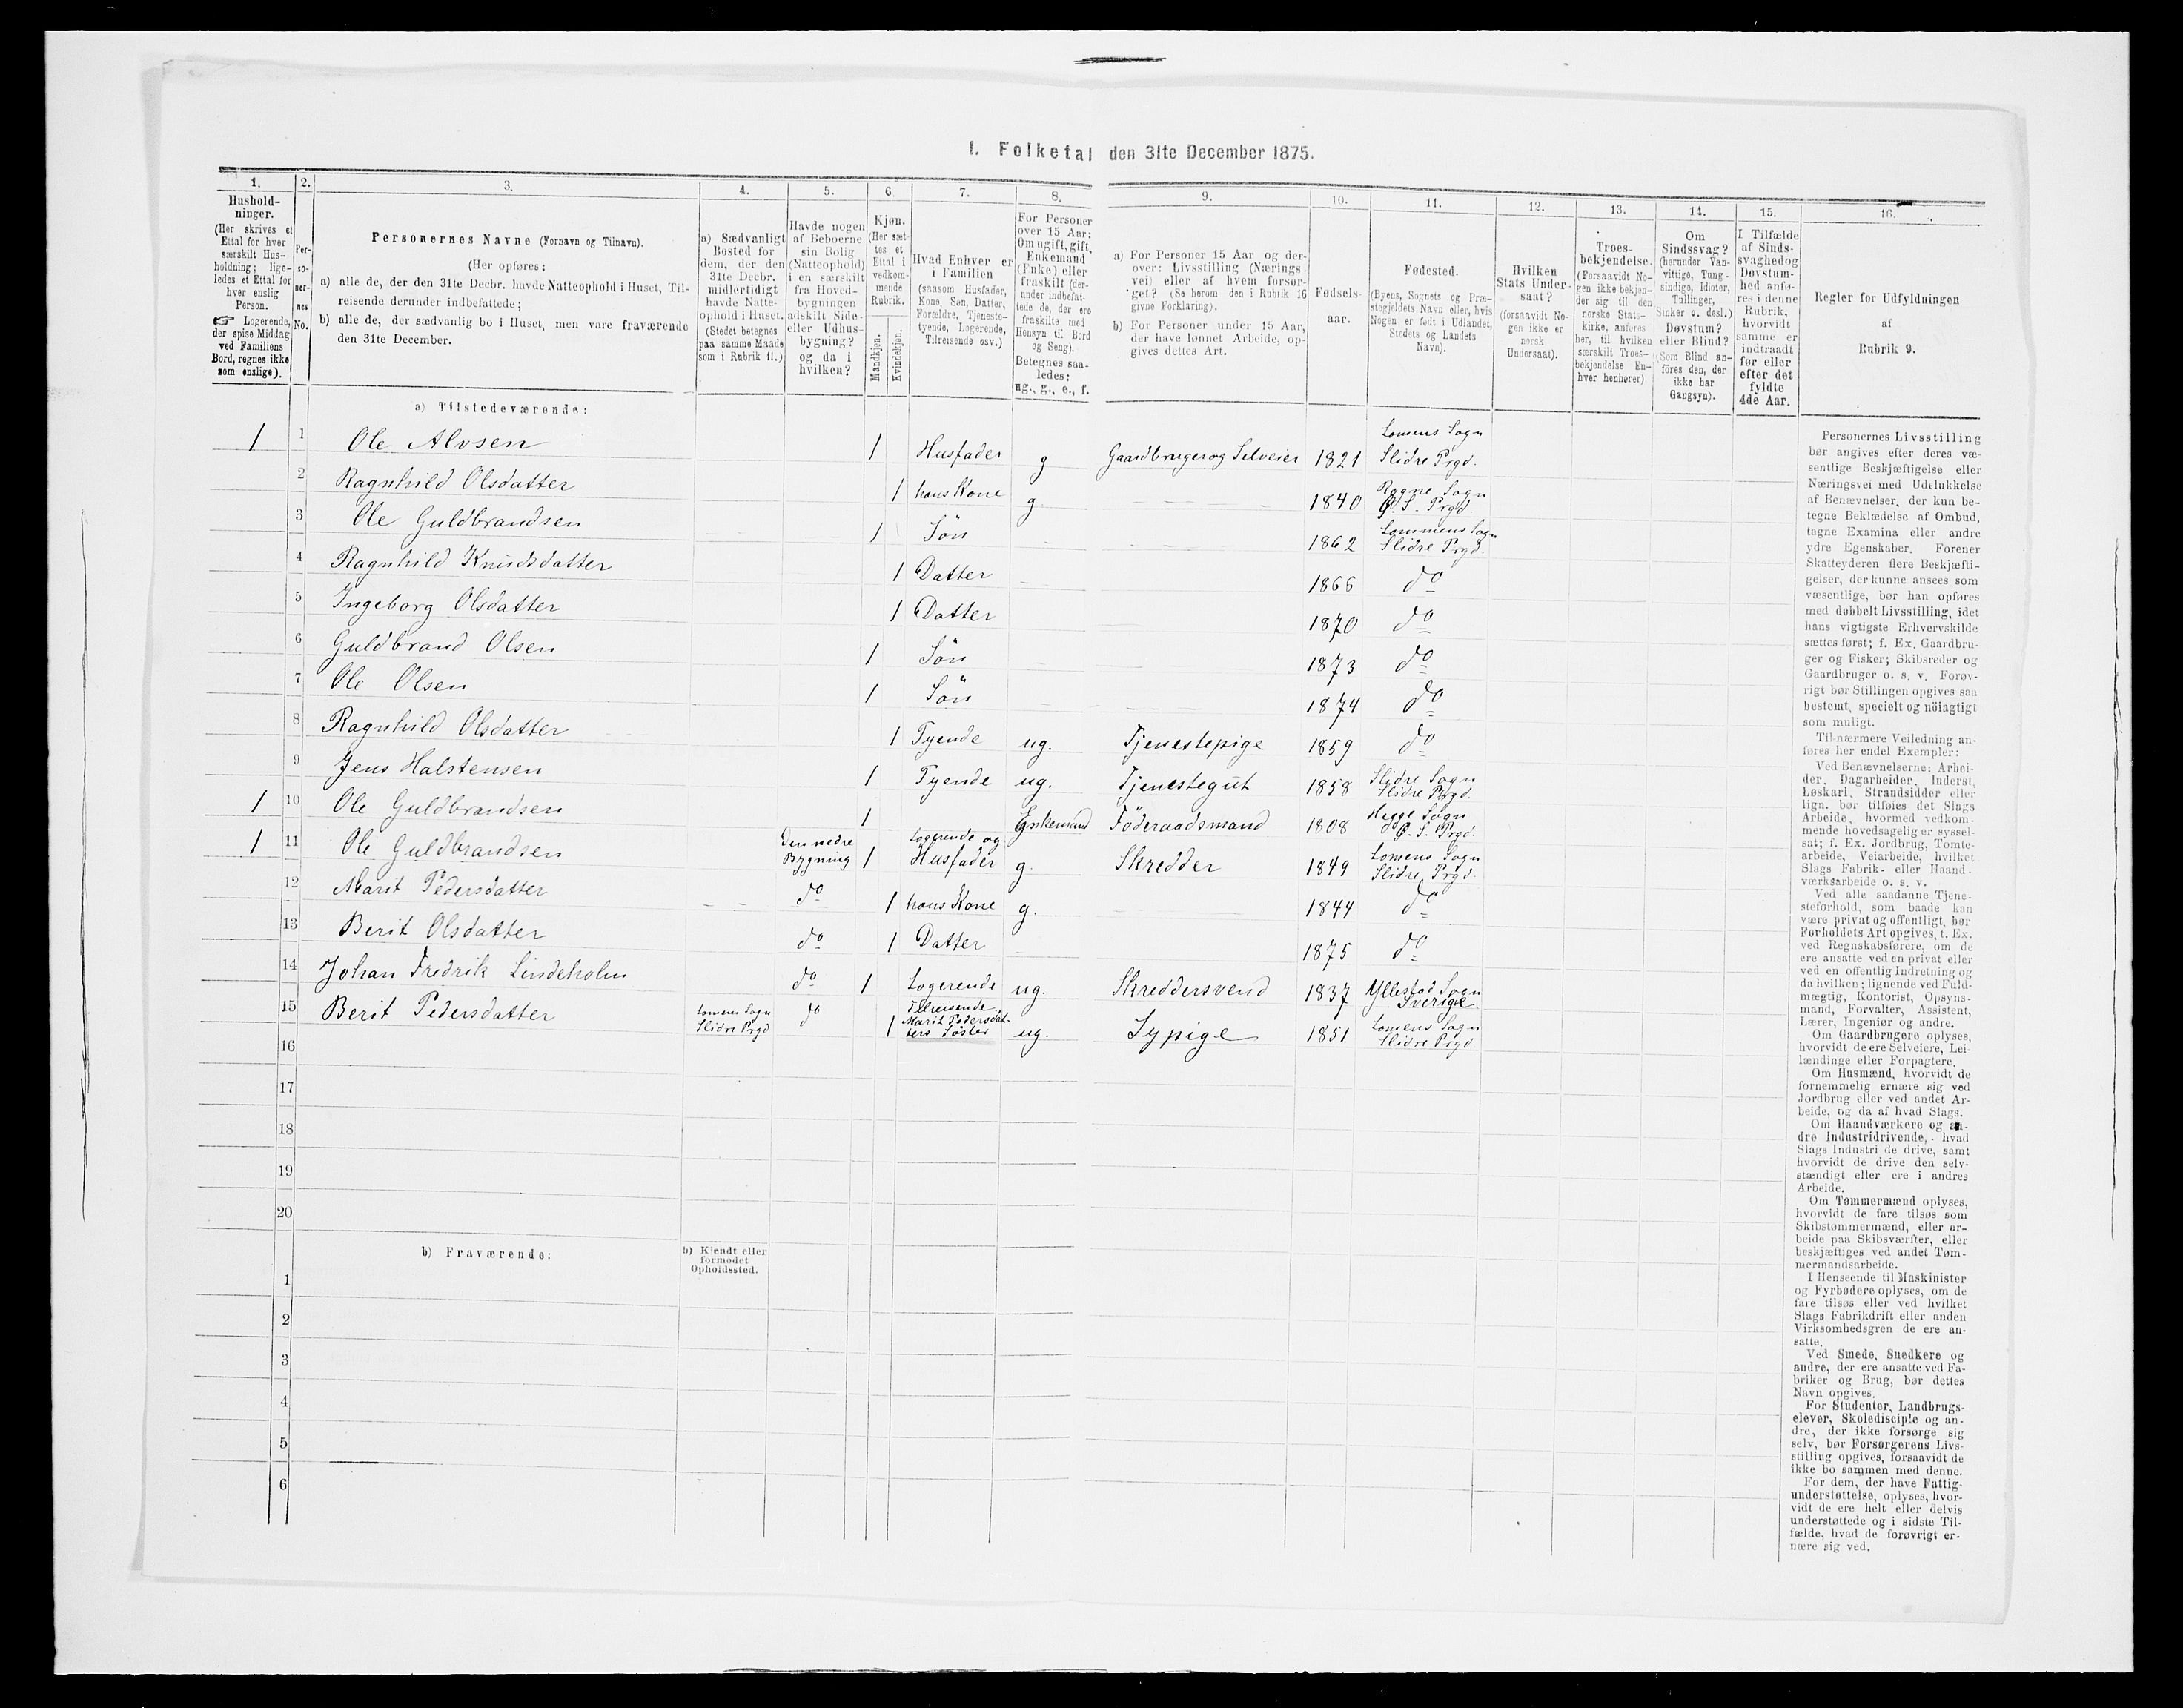 I. Folketal den 31te December 1875.
1. 2. 3. 4. 5. 6. 7. 8. 9. 10. 11. 12. 13. 14. 15. 16.
Hushold-
ninger.
(Her skrives et
Ettal for hver
særskilt Hus-
holdning; lige-
ledes et Ettal for
hver enslig
Person.
☞ Logerende,
der spise Middag
ved Familiens
Bord, regnes ikke
som enslige).
Per-
so-
ner-
nes
No.
Personernes Navne (Fornavn og Tilnavn).
(Her opføres:
a) alle de, der den 31te Decbr. havde Natteophold i Huset, Til-
reisende derunder indbefattede;
b) alle de, der sædvanlig bo i Huset, men vare fraværende
den 31te December.
a) Sædvanligt
Bosted for
dem, der den
31te Decbr.
midlertidigt
havde Natte-
ophold i Huset.
(Stedet betegnes
paa samme Maade
som i Rubrik 11.)
Havde nogen
af Beboerne
sin Bolig
(Natteophold)
i en særskilt
fra Hoved-
bygningen
adskilt Side-
eller Udhus-
bygning?
og da i
hvilken?
Kjøn.
(Her sæt-
tes et
Ettal i
vedkom-
mende
Rubrik.
Mandkjøn.
Kvindekjøn.
Hvad Enhver er
i Familien
(saasom Husfader,
Kone, Søn, Datter,
Forældre, Tjeneste-
tyende, Logerende,
Tilreisende osv.)
For Personer
over 15 Aar:
Om ugift, gift,
Enkemand
(Enke) eller
fraskilt (der-
under indbefat-
tede de, der ere
fraskilte med
Hensyn til Bord
og Seng).
Betegnes saa-
ledes:
ug., g., e., f.
a) For Personer 15 Aar og der-
over: Livsstilling (Nærings-
vei) eller af hvem forsør-
get? (Se herom den i Rubrik 16
givne Forklaring).
b) For Personer under 15 Aar,
der have lønnet Arbeide, op-
gives dettes Art.
Fødsels-
aar.
Fødested.
(Byens, Sognets og Præ-
stegjeldets Navn eller, hvis
Nogen er født i Udlandet,
Stedets og Landets
Navn).
Hvilken
Stats Under-
saat?
(forsaavidt No-
gen ikke er
norsk
Undersaat).
Troes-
bekjendelse.
(Forsaavidt No-
gen ikke bekjen-
der sig til den
norske Stats-
kirke, anføres
her, til hvilken
særskilt Troes-
bekjendelse En-
hver henhører).
Om
Sindssvag?
(herunder Van-
vittige, Tung-
sindige, Idioter,
Tullinger,
Sinker o. desl.)
Døvstum?
eller Blind?
(Som Blind an-
føres den, der
ikke har
Gangsyn).
I Tilfælde
af Sinds-
svaghed og
Døvstum-
hed anfø-
res i denne
Rubrik,
hvorvidt
samme er
indtraadt
før eller
efter det
fyldte
4de Aar.
Regler for Udfyldningen
af
Rubrik 9.
a) Tilstedeværende:
1 1 Ole Alvsen 1 Husfader g Gaardbruger og Selveier 1821 Lomens Sogn Slidre Prgd.
2 Ragnhild Olsdatter 1 hans Kone g 1840 Rogne Sogn Ø. S. Prgd.
3 Ole Guldbrandsen 1 Sön 1862 Lommens Sogn Slidre Prgd.
4 Ragnhild Knudsdatter 1 Datter 1866 do
5 Ingeborg Olsdatter 1 Datter 1870 do
6 Guldbrand Olsen 1 Sön 1873 do
7 Ole Olsen 1 Sön 1874 do
8 Ragnhild Olsdatter 1 Tyende ug. Tjenestepige 1859 do
9 Jens Halstensen 1 Tyende ug. Tjenestegut 1858 Slidre Sogn Slidre Prgd.
1 10 Ole Guldbrandsen 1 Enkemand Föderaadsmand 1808 Hegge Sogn Ø. S. Prgd.
1 11 Ole Guldbrandsen Den nedre Bygning 1 Logerende og Husfader g. Skredder 1849 Lomens Sogn Slidre Prgd
12 Marit Pedersdatter do 1 hans Kone g. 1844 do
13 Berit Olsdatter do 1 Datter 1875 do
14 Johan Fredrik Lindeholm do 1 Logerende ug. Skreddersvend 1837 Yllestad Sogn Sverige
15 Berit Pedersdatter Lomens Sogn Slidre Prgd do 1 Tilreisende Marit Pedersdat- ters Söster ug. Sypige 1851 Lomens Sogn Slidre Prgd
16
17
18
19
20
b) Fraværende:
b) Kjendt eller
formodet
Opholdssted.
1
2
3
4
5
6
Personernes Livsstilling
bør angives efter deres væ-
sentlige Beskjæftigelse eller
Næringsvei med Udelukkelse
af Benævnelser, der kun be-
tegne Beklædelse af Ombud,
tagne Examina eller andre
ydre Egenskaber. Forener
Skatteyderen flere Beskjæfti-
gelser, der kunne ansees som
væsentlige, bør han opføres
med dobbelt Livsstilling, idet
hans vigtigste Erhvervskilde
sættes først; f. Ex. Gaardbru-
ger og Fisker; Skibsreder og
Gaardbruger o. s. v. Forøv-
rigt bør Stillingen opgives saa
bestemt, specielt og nöiagtigt
som muligt.
Til nærmere Veiledning an-
føres her endel Exempler:
Ved Benævnelserne: Arbei-
der, Dagarbeider, Inderst,
Løskarl, Strandsidder eller
lign. bør tilføies det Slags
Arbeide, hvormed vedkom-
mende hovedsagelig er syssel-
sat; f. Ex. Jordbrug, Tomte-
arbeide, Veiarbeide, hvilket
Slags Fabrik- eller Haand-
værksarbeide o. s. v.
Ved alle saadanne Tjene-
steforhold, som baade kan
være privat og offentligt, bør
Forholdets Art opgives, t. Ex.
ved Regnskabsførere, om de
ere ansatte ved en privat eller
ved en offentlig Indretning og
da hvilken; lignende ved Fuld-
mægtig, Kontorist, Opsyns-
mand, Forvalter, Assistent,
Lærer, Ingeniør og andre.
Om Gaardbrugere oplyses,
hvorvidt de ere Selveiere, Lei-
lændinge eller Forpagtere.
Om Husmænd, hvorvidt de
fornemmelig ernære sig ved
Jordbrug eller ved andet Ar-
beide, og da af hvad Slags.
Om Haandværkere og an-
dre Industridrivende, hvad
Slags Industri de drive, samt
hvorvidt de drive den selv-
stændigt eller ere i andres
Arbeide.
Om Tømmermænd oplyses,
hvorvidt de fare tilsøs som
Skibstømmermænd, eller ar-
beide paa Skibsværfter, eller
beskjæftiges ved andet Tøm-
mermandsarbeide.
I Henseende til Maskinister
og Fyrbødere oplyses, om de
fare tilsøs eller ved hvilket
Slags Fabrikdrift eller anden
Virksomhedsgren de ere an-
satte.
Ved Smede, Snedkere og
andre, der ere ansatte ved Fa-
briker og Brug, bør dettes
Navn opgives.
For Studenter, Landbrugs-
elever, Skoledisciple og an-
dre, der ikke forsørge sig
selv, bør Forsørgerens Livs-
stilling opgives, forsaavidt de
ikke bo sammen med denne.
For dem, der have Fattig-
understøttelse, oplyses, hvor-
vidt de ere helt eller delvis
understøttede og i sidste Til-
fælde, hvad de forøvrigt er-
nære sig ved.